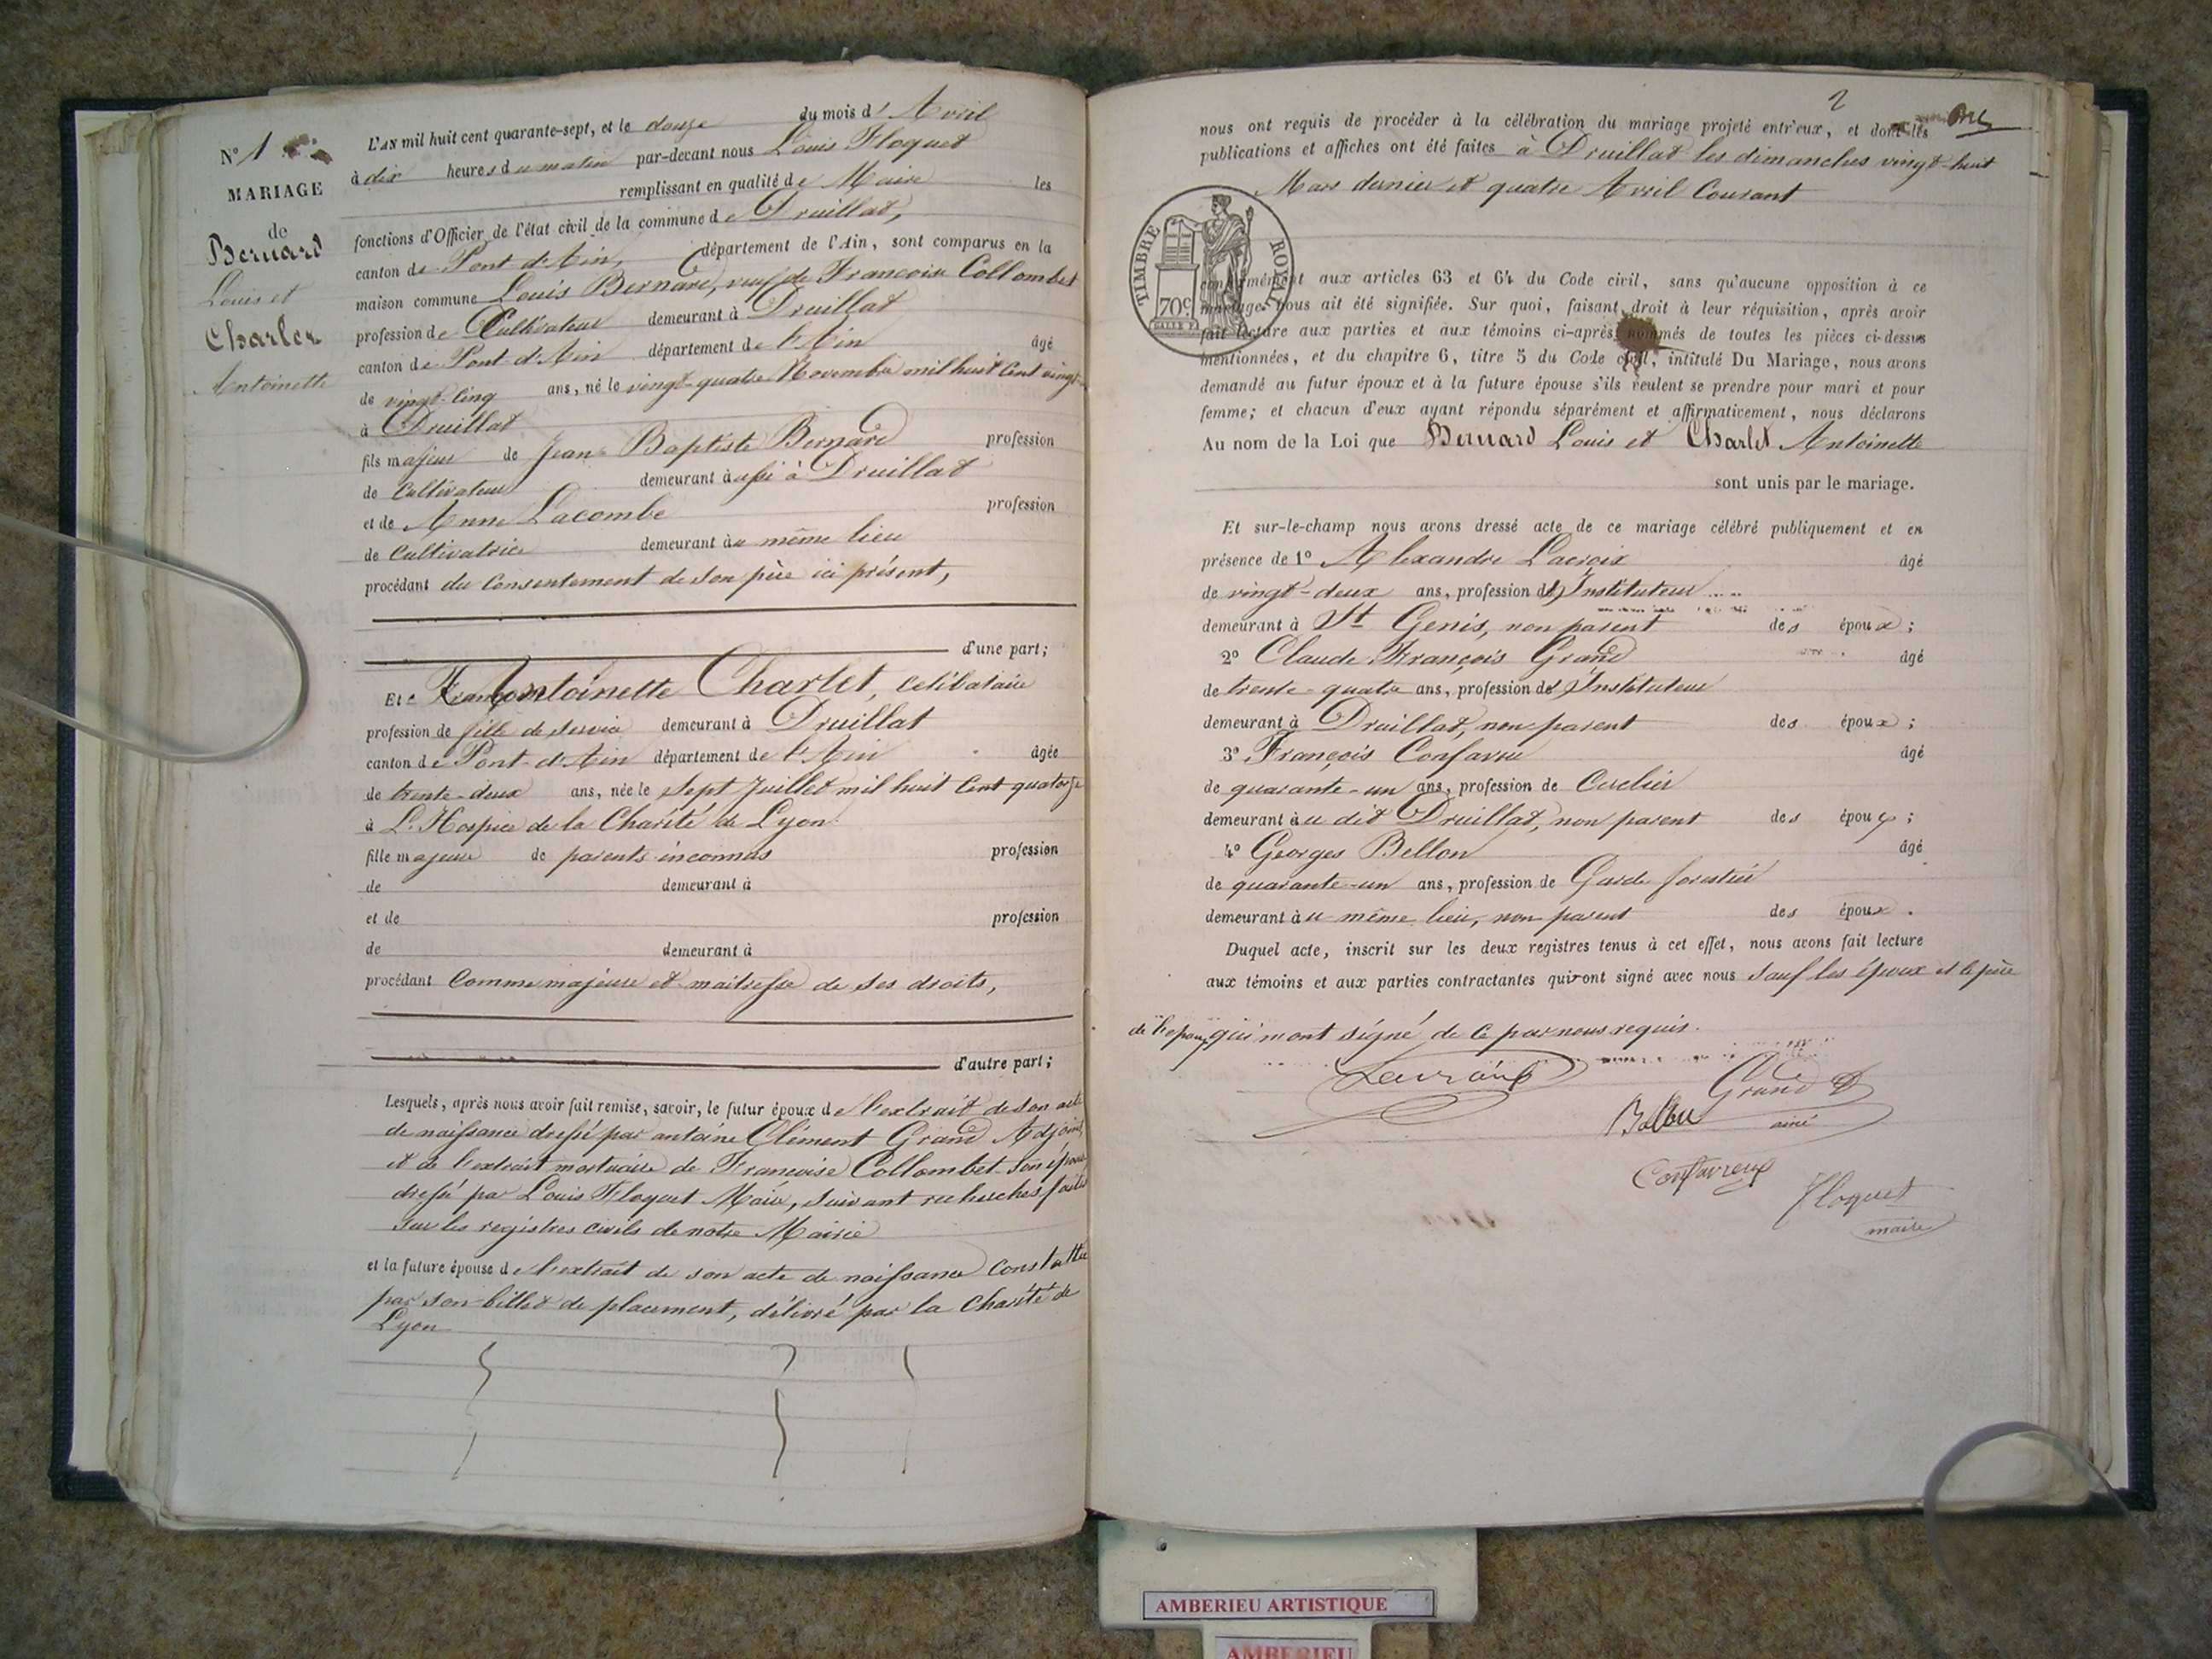 N° 1
MARIAGE
de
Bernard
Louis et
Charlet
Antoinette
L'AN mil huit cent quarante-sept, et le douze du mois d'Avril
à dix heures du matin par-devant nous Louis Floquet
remplissant en qualité de Maire les
fonctions d'Officier de l'état civil de la commune de Druillat,
canton de Pont d'Ain, département de l'Ain, sont comparus en la
maison commune Louis Bernard, veuf de Francoise Collombet
profession de Cultivateur demeurant à Druillat
canton de Pont d'Ain département de l'Ain âgé
de vingt-cinq ans, né le vingt-quatre Novembre mil huit cent vingt-
à Druillat
fils majeur de Jean-Baptiste Bernard profession
de Cultivateur demeurant aussi à Druillat
et de Anne Lacombe profession
de Cultivatrice demeurant au même lieu
procédant du consentement de son père ici présent,
d'une part;
Et Antoinette Charlet, célibataire
profession de fille de service demeurant à Druillat
canton de Pont-d'Ain département de l'Ain âgée
de trente-deux ans, née le sept Juillet mil huit cent quatorze
à L'Hospice de la Charité de Lyon
fille majeure de parents inconnus profession
de demeurant à
et de profession
de demeurant à
procédant comme majeure et maitresse de ses droits,
d'autre part;
Lesquels, après nous avoir fait remise, savoir, le futur époux de l'extrait de son acte
de naissance dressé par antoine Clément Grand Adjoint,
et de l'extrait mortuaire de Francoise Collombet son épouse
dressé par Louis Floquet Maire, suivant recherches faites
sur les registres civils de notre Mairie
et la future épouse de l'extrait de son acte de naissance constatée
par son billet de placement, délivré par la Charité de
Lyon
2
nous ont requis de procéder à la célébration du mariage projeté entr'eux, et dont les
publications et affiches ont été faites à Druillat les dimanches vingt-huit
Mars dernier et quatre Avril Courant
TIMBRE ROYAL
70c
conformément aux articles 63 et 64 du Code civil, sans qu'aucune opposition à ce
mariage nous ait été signifiée. Sur quoi, faisant droit à leur réquisition, après avoir
fait lecture aux parties et aux témoins ci-après nommés de toutes les pièces ci-dessus
mentionnées, et du chapitre 6, titre 5 du Code civil, intitulé Du Mariage, nous avons
demandé au futur époux et à la future épouse s'ils veulent se prendre pour mari et pour
femme; et chacun d'eux ayant répondu séparément et affirmativement, nous déclarons
Au nom de la Loi que Bernard Louis et Charlet Antoinette
sont unis par le mariage.
Et sur-le-champ nous avons dressé acte de ce mariage célébré publiquement et en
présence de 1° Alexandre Lacroix âgé
de vingt-deux ans, profession d'Instituteur
demeurant à St Genis, non parent des époux;
2° Claude François Grand âgé
de trente-quatre ans, profession d'Instituteur
demeurant à Druillat, non parent des époux;
3° François Confavreu âgé
de quarante-un ans, profession de Cerclier
demeurant au dit Druillat, non parent des époux;
4° Georges Bellon âgé
de quarante-un ans, profession de Garde forestier
demeurant au même lieu, non parent des époux.
Duquel acte, inscrit sur les deux registres tenus à cet effet, nous avons fait lecture
aux témoins et aux parties contractantes qui ont signé avec nous sauf les époux et le père
de l'époux qui n'ont signé de ce par nous requis.
Grand
Bellon
ainé
Confavreux
Floquet
maire
AMBERIEU ARTISTIQUE
AMBERIEU